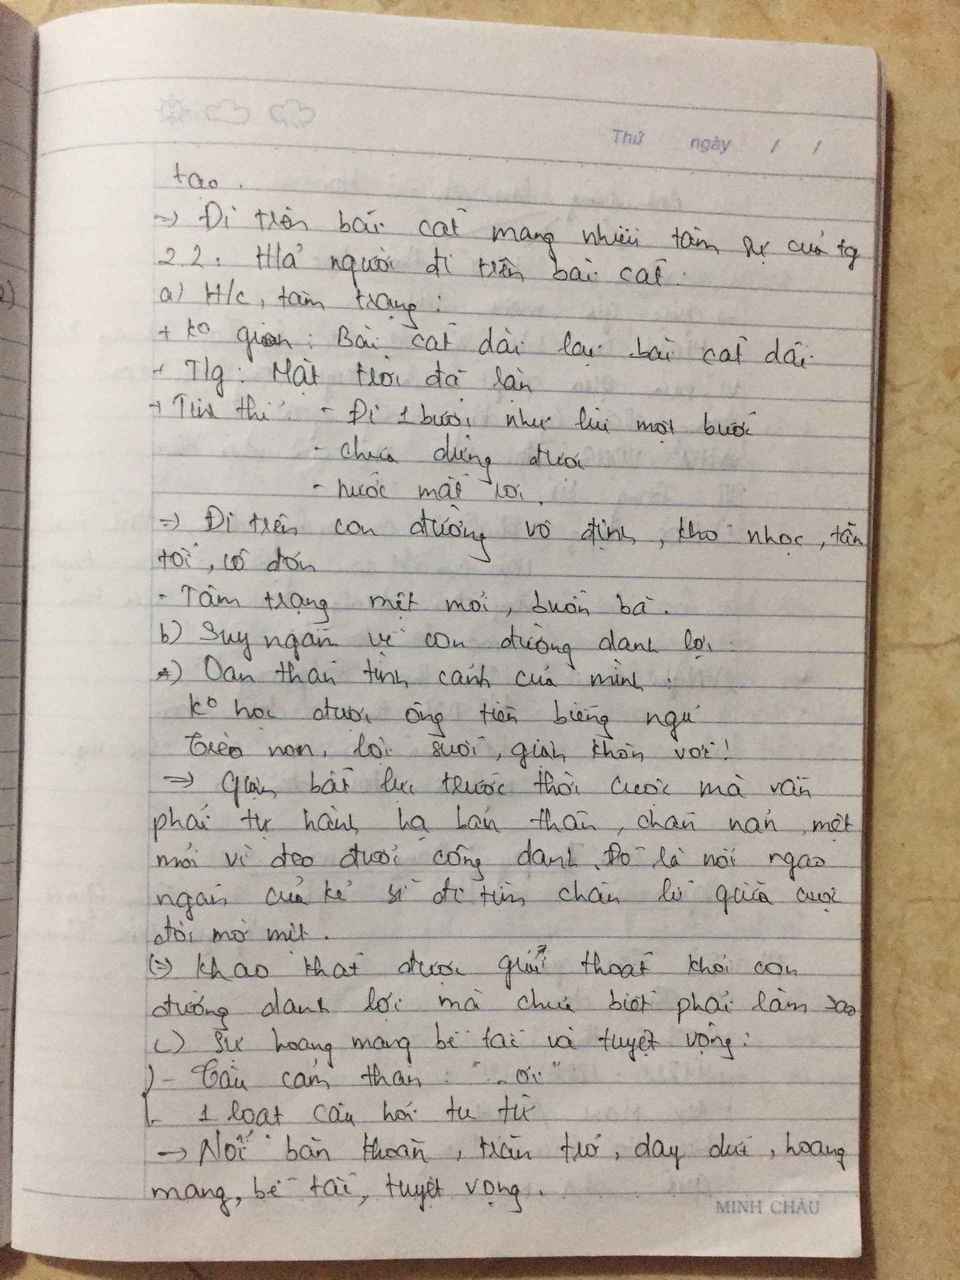 Thứ ngày / /
tao.
→ Đi trên bãi cát mang nhiều tâm sự của tg
2.2. H/ả người đi trên bãi cát.
a) H/c, tâm trạng:
+ ko gian: Bãi cát dài lại bãi cát dài.
+ T/g: Mặt trời đã lặn
+ Tư thế: - Đi 1 bước như lùi một bước
- chưa dừng được
- nước mắt rơi.
=> Đi trên con đường vô định, khó nhọc, tăm
tối, cô đơn
- Tâm trạng mệt mỏi, buồn bã.
b) Suy ngẫm về con đường danh lợi.
*) Oan thán tình cảnh của mình:
ko học được ông tiên biếng ngủ
Trèo non, lội suối, giận khôn vơi!
→ Giận bất lực trước thời cuộc mà vẫn
phải tự hành hạ bản thân, chán nản, mệt
mỏi vì đeo đuổi công danh. Đó là nỗi ngao
ngán của kẻ sĩ đi tìm chân lí giữa cuộc
đời mờ mịt.
(=) khao khát được giải thoát khỏi con
đường danh lợi mà chưa biết phải làm sao
c) Sự hoang mang bế tắc và tuyệt vọng:
- Câu cảm thán: "... ơi"
- 1 loạt câu hỏi tu từ
→ Nỗi băn khoăn, trăn trở, day dứt, hoang
mang, bế tắc, tuyệt vọng.
MINH CHÂU